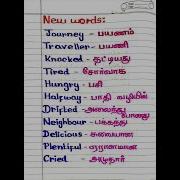 New words:
Journey - பயணம்
Traveller - பயணி
Knocked - தட்டியது
Tired - சோர்வாக
Hungry - பசி
Halfway - பாதி வழியில்
Drifted - அலைந்து போனது
Neighbour - பக்கத்து
Delicious - சுவையான
Plentiful - ஏராளமான
Cried - அழுதார்